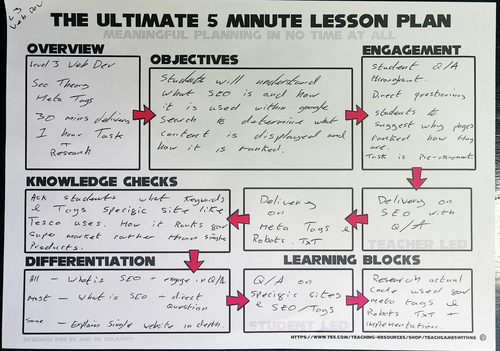 L3
Web Dev
THE ULTIMATE 5 MINUTE LESSON PLAN
MEANINGFUL PLANNING IN NO TIME AT ALL
OVERVIEW
Level 3 Web Dev
Seo Theory
Meta Tags
30 mins delivery
1 hour Task
+
Research
OBJECTIVES
Students will understand
what SEO is and how
it is used within google
Search to determine what
content is displayed and
how it is ranked.
ENGAGEMENT
Student Q/A
throughout.
Direct questioning
Students to
suggest why pages
ranked how they
are.
Task is
KNOWLEDGE CHECKS
Ask students what keywords
& Tags specific site like
Tesco uses. How it Ranks for
Super market rather than single
Products.
Delivery
on
Meta Tags &
Robots.TXT
Delivery on
SEO with
Q/A
TEACHER LED
DIFFERENTIATION
All - What is SEO + engage in Q/A
Most - What is SEO + direct
question
Some - Explain single website in depth.
LEARNING BLOCKS
Q/A on
Specific sites
& SEO/Tags
STUDENT LED
Research actual
Code used for
Meta tags &
Robots TXT +
Implementation.
DESIGNED FOR FE AND HE DELIVERY
HTTPS://WWW.TES.COM/TEACHING-RESOURCES/SHOP/TEACHGAMESWITHME